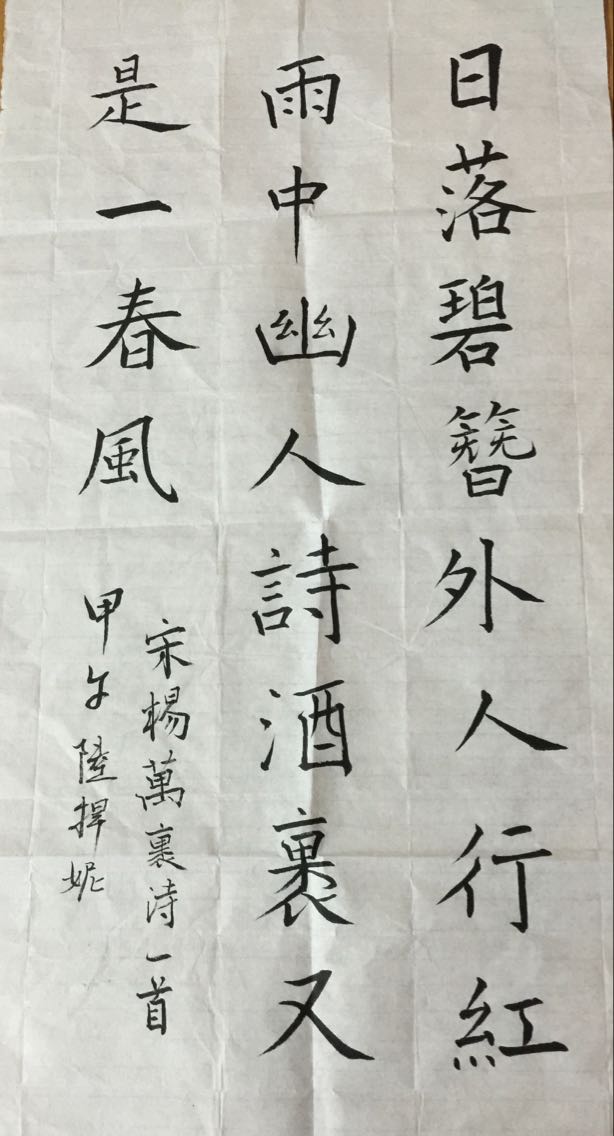 日落碧簪外人行紅
雨中幽人詩酒裹又
是一春風
宋楊萬裹詩一首
甲午陸捍妮